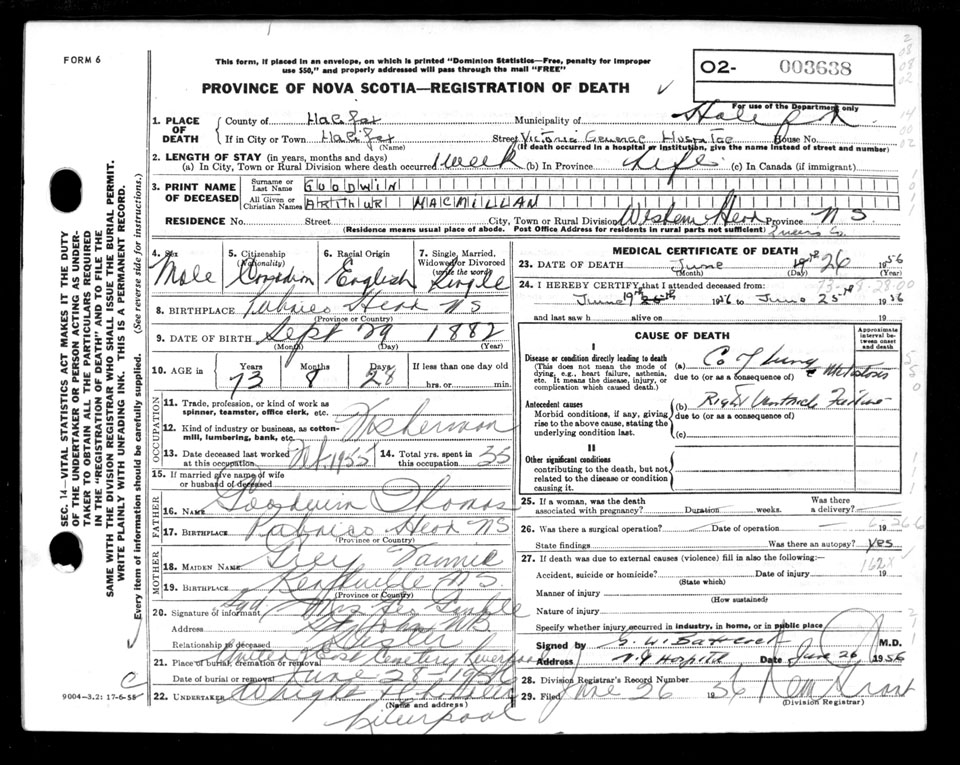 FORM 6
This form, if placed in an envelope, on which is printed "Dominion Statistics—Free, penalty for improper
use $50," and properly addressed will pass through the mail "FREE"
O2- 003638
For use of the Department only
PROVINCE OF NOVA SCOTIA—REGISTRATION OF DEATH
1. PLACE OF DEATH
County of Halifax Municipality of
If in City or Town Halifax Street Victoria General Hospital House No.
(Name) (If death occurred in a hospital or institution, give the name instead of street and number)
2. LENGTH OF STAY (in years, months and days)
(a) In City, Town or Rural Division where death occurred 1 week (b) In Province Life (c) In Canada (if immigrant)
3. PRINT NAME OF DECEASED
Surname or Last Name GOODWIN
All Given or Christian Names ARTHUR MACMILLAN
RESIDENCE No. Street City, Town or Rural Division Western Head Province N S
(Residence means usual place of abode. Post Office Address for residents in rural parts not sufficient) Queens Co.
4. Sex Male
5. Citizenship (Nationality) Canadian
6. Racial Origin English
7. Single, Married, Widowed or Divorced (write the word) Single
8. BIRTHPLACE Pubnico Head NS
(Province or Country)
9. DATE OF BIRTH Sept 29 1882
(Month) (Day) (Year)
10. AGE in Years 73 Months 8 Days 28 If less than one day old
hrs. or min.
OCCUPATION
11. Trade, profession, or kind of work as
spinner, teamster, office clerk, etc. Fisherman
12. Kind of industry or business, as cotton-
mill, lumbering, bank, etc.
13. Date deceased last worked at this occupation 1955
14. Total yrs. spent in this occupation 35
15. If married give name of wife
or husband of deceased
FATHER
16. NAME Goodwin Thomas
17. BIRTHPLACE Pubnico Head NS
(Province or Country)
MOTHER
18. MAIDEN NAME
19. BIRTHPLACE N.S.
(Province or Country)
20. Signature of informant Mrs
Address St John NB
Relationship to deceased Sister
21. Place of burial, cremation or removal Cemetery Liverpool
Date of burial or removal June 28 1956
22. UNDERTAKER
(Name and address)
Liverpool
MEDICAL CERTIFICATE OF DEATH
23. DATE OF DEATH June 26 1956
(Month) (Day) (Year)
24. I HEREBY CERTIFY that I attended deceased from:
73-8-28-00
June 19th 1956 to June 25th 1956
and last saw h alive on 19
CAUSE OF DEATH
Approximate interval between onset and death
I
Disease or condition directly leading to death
(This does not mean the mode of
dying, e.g., heart failure, asthenia,
etc. It means the disease, injury, or
complication which caused death.)
(a) Ca of Lung
due to (or as a consequence of)
Antecedent causes
Morbid conditions, if any, giving
rise to the above cause, stating the
underlying condition last.
(b) Right Ventricle Failure
due to (or as a consequence of)
(c)
II
Other significant conditions
contributing to the death, but not
related to the disease or condition
causing it.
25. If a woman, was the death
associated with pregnancy? Duration weeks. Was there a delivery?
26. Was there a surgical operation? Date of operation 19
State findings Was there an autopsy? Yes
27. If death was due to external causes (violence) fill in also the following:
162X
Accident, suicide or homicide? Date of injury 19
(State which)
Manner of injury
(How sustained)
Nature of injury
Specify whether injury occurred in industry, in home, or in public place
Signed by M.D.
Address V.G Hospital Date June 26 1956
28. Division Registrar's Record Number
29. Filed June 26 1956
(Division Registrar)
9004-3.2: 17-6-55
SEC. 14—VITAL STATISTICS ACT MAKES IT THE DUTY
OF THE UNDERTAKER OR PERSON ACTING AS UNDER-
TAKER TO OBTAIN ALL THE PARTICULARS REQUIRED
IN THE "REGISTRATION OF DEATH" AND TO FILE THE
SAME WITH THE DIVISION REGISTRAR WHO SHALL ISSUE THE BURIAL PERMIT.
WRITE PLAINLY WITH UNFADING INK. THIS IS A PERMANENT RECORD.
Every item of information should be carefully supplied. (See reverse side for instructions.)